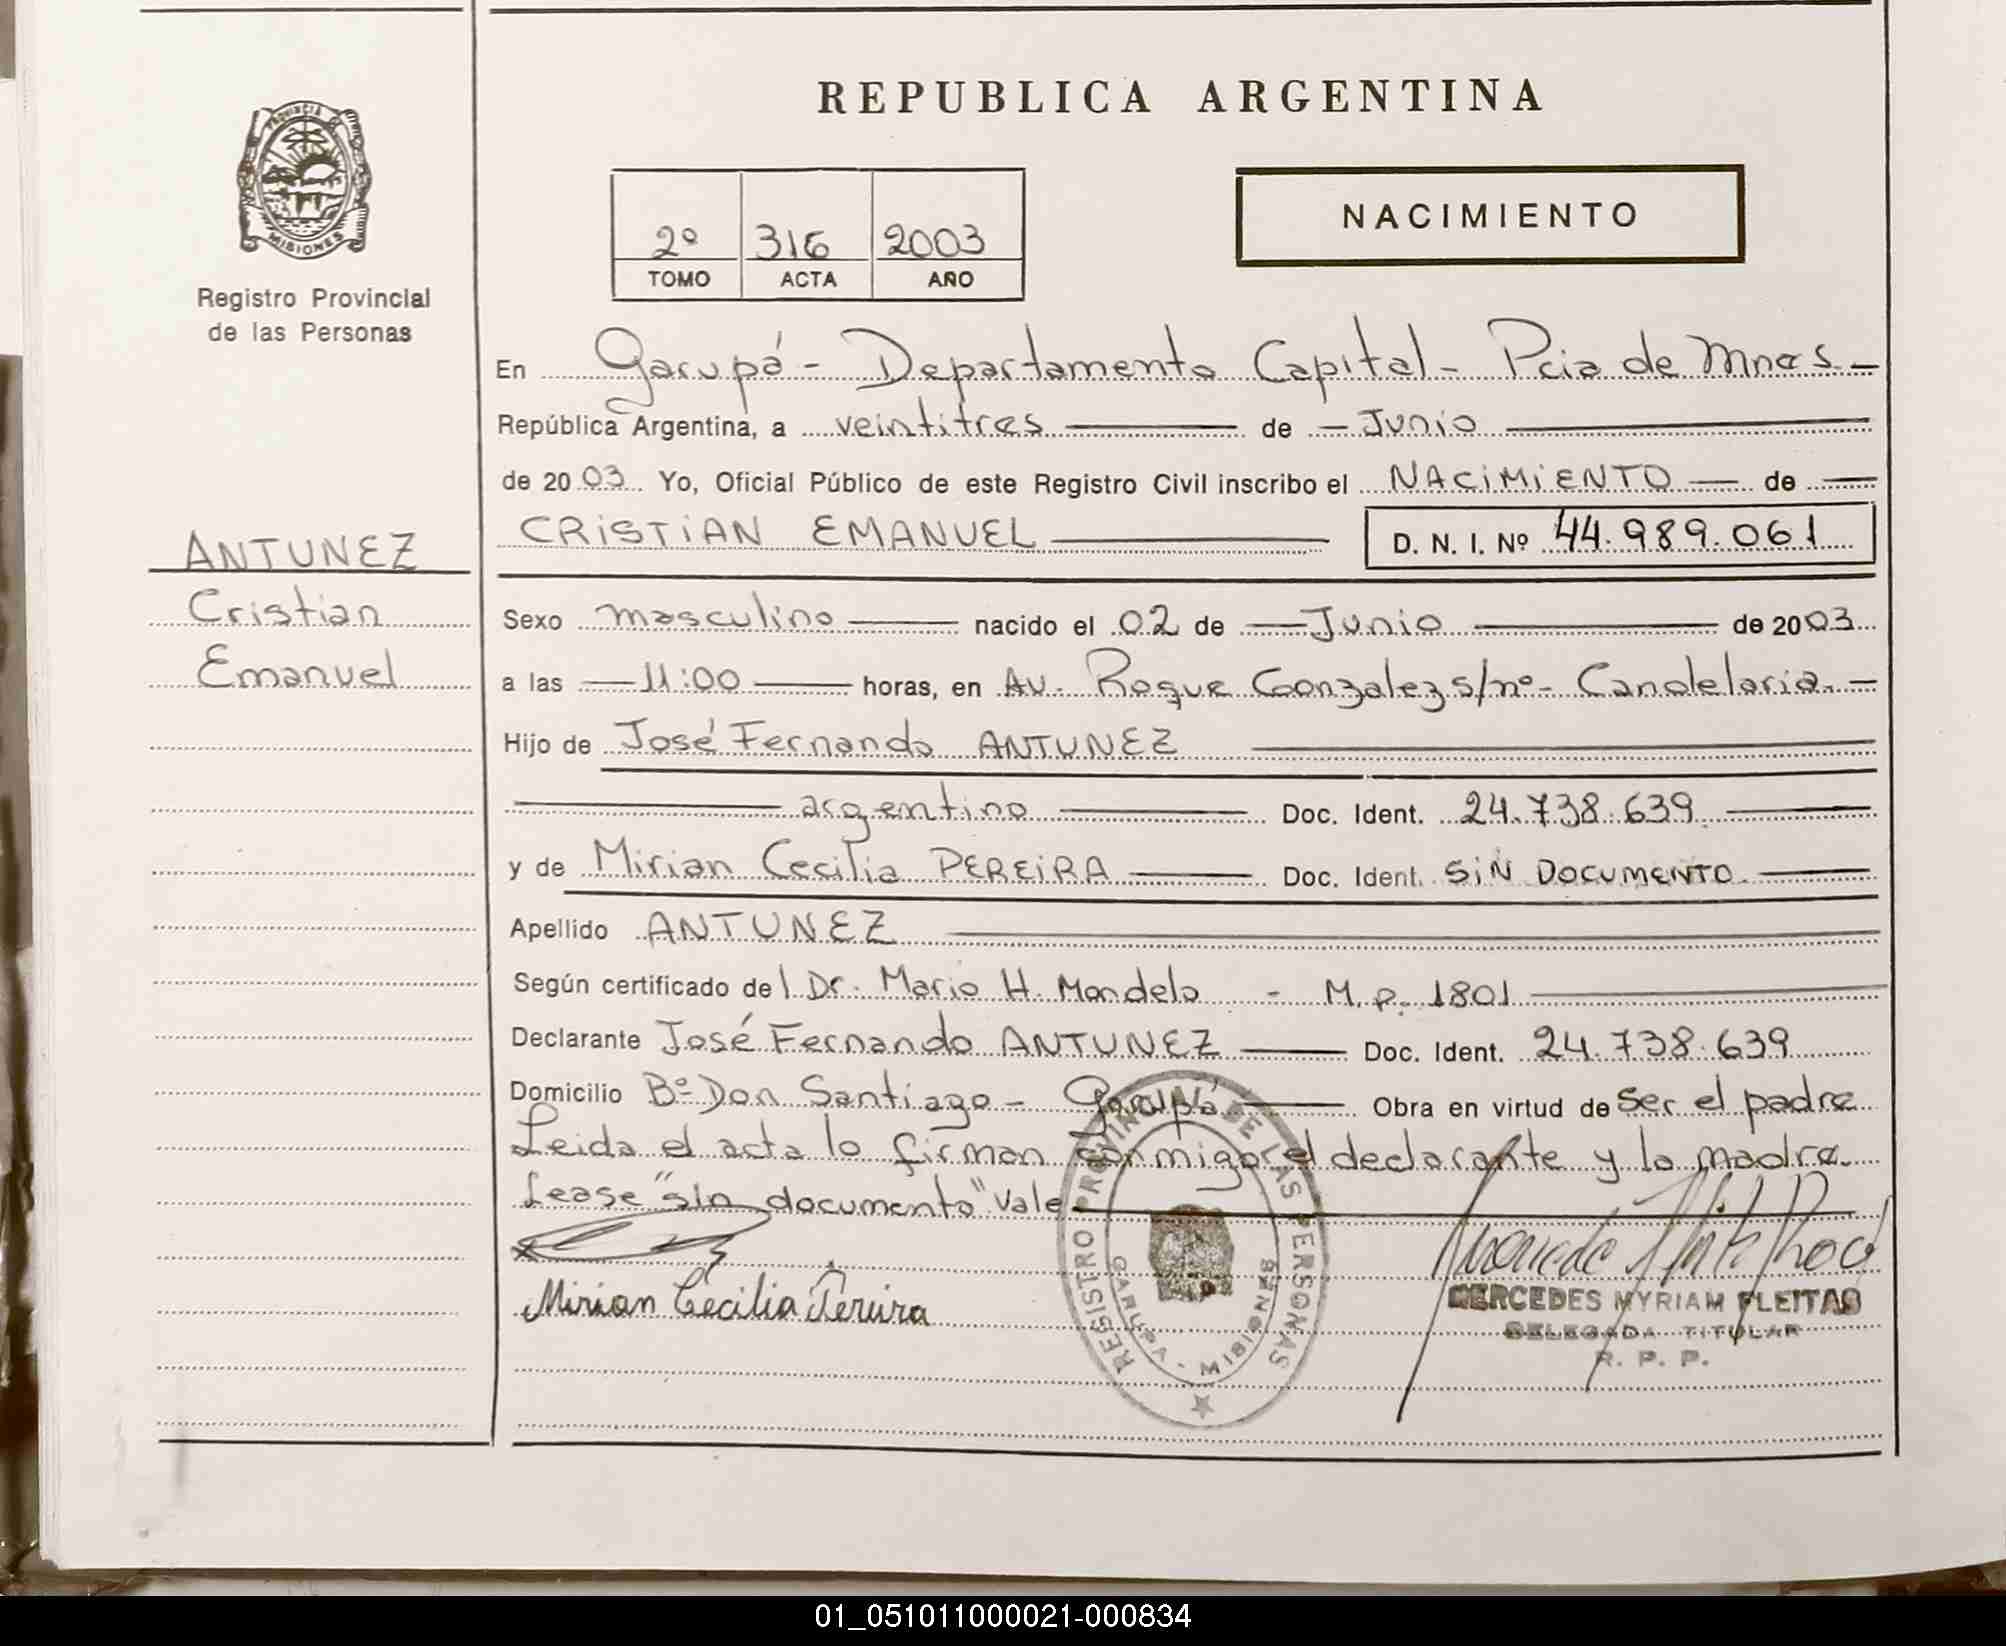 REPUBLICA ARGENTINA
PROVINCIA
MISIONES
Registro Provincial
de las Personas
2º 316 2003
TOMO ACTA AÑO
NACIMIENTO
En Garupá - Departamento Capital - Pcia de Mnes -
República Argentina, a veintitres de Junio
de 2003 Yo, Oficial Público de este Registro Civil inscribo el NACIMIENTO de
ANTUNEZ
Cristian
Emanuel
CRISTIAN EMANUEL D. N. I. Nº 44.989.061
Sexo masculino nacido el 02 de Junio de 2003
a las 11:00 horas, en Av. Roque Gonzalez s/nº - Candelaria. -
Hijo de José Fernando ANTUNEZ
argentino Doc. Ident. 24.738.639
y de Mirian Cecilia PEREIRA Doc. Ident. SIN DOCUMENTO
Apellido ANTUNEZ
Según certificado del Dr. Mario H. - M.P. 1801
Declarante José Fernando ANTUNEZ Doc. Ident. 24.738.639
Domicilio Bº Don Santiago - Garupá Obra en virtud de ser el padre
Leida el acta lo firman conmigo el declarante y la madre.
Lease "sin documento" Vale
Mirian Cecilia Pereira
REGISTRO PROVINCIAL DE LAS PERSONAS
GARUPA - MISIONES
MERCEDES MYRIAM FLEITAS
DELEGADA TITULAR
R. P. P.
01_051011000021-000834